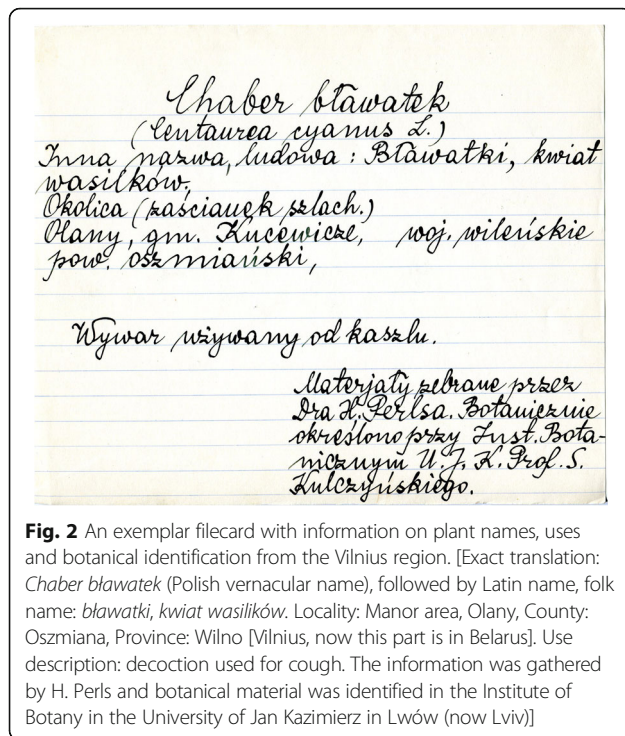 Chaber bławatek
(Centaurea cyanus L.)
Inna nazwa, ludowa : Bławatki, kwiat
wasilków,
Okolica (zaścianek szlach.)
Olany, gm. Kucewicze, woj. wileńskie
pow. oszmiański,
Wywar używany od kaszlu.
Materjały zebrane przez
Dra H. Perlsa. Botanicznie
określono przy Inst. Bota-
nicznym U. J. K. Prof. S.
Kulczyńskiego.
Fig. 2 An exemplar filecard with information on plant names, uses
and botanical identification from the Vilnius region. [Exact translation:
Chaber bławatek (Polish vernacular name), followed by Latin name, folk
name: bławatki, kwiat wasilików. Locality: Manor area, Olany, County:
Oszmiana, Province: Wilno [Vilnius, now this part is in Belarus]. Use
description: decoction used for cough. The information was gathered
by H. Perls and botanical material was identified in the Institute of
Botany in the University of Jan Kazimierz in Lwów (now Lviv)]